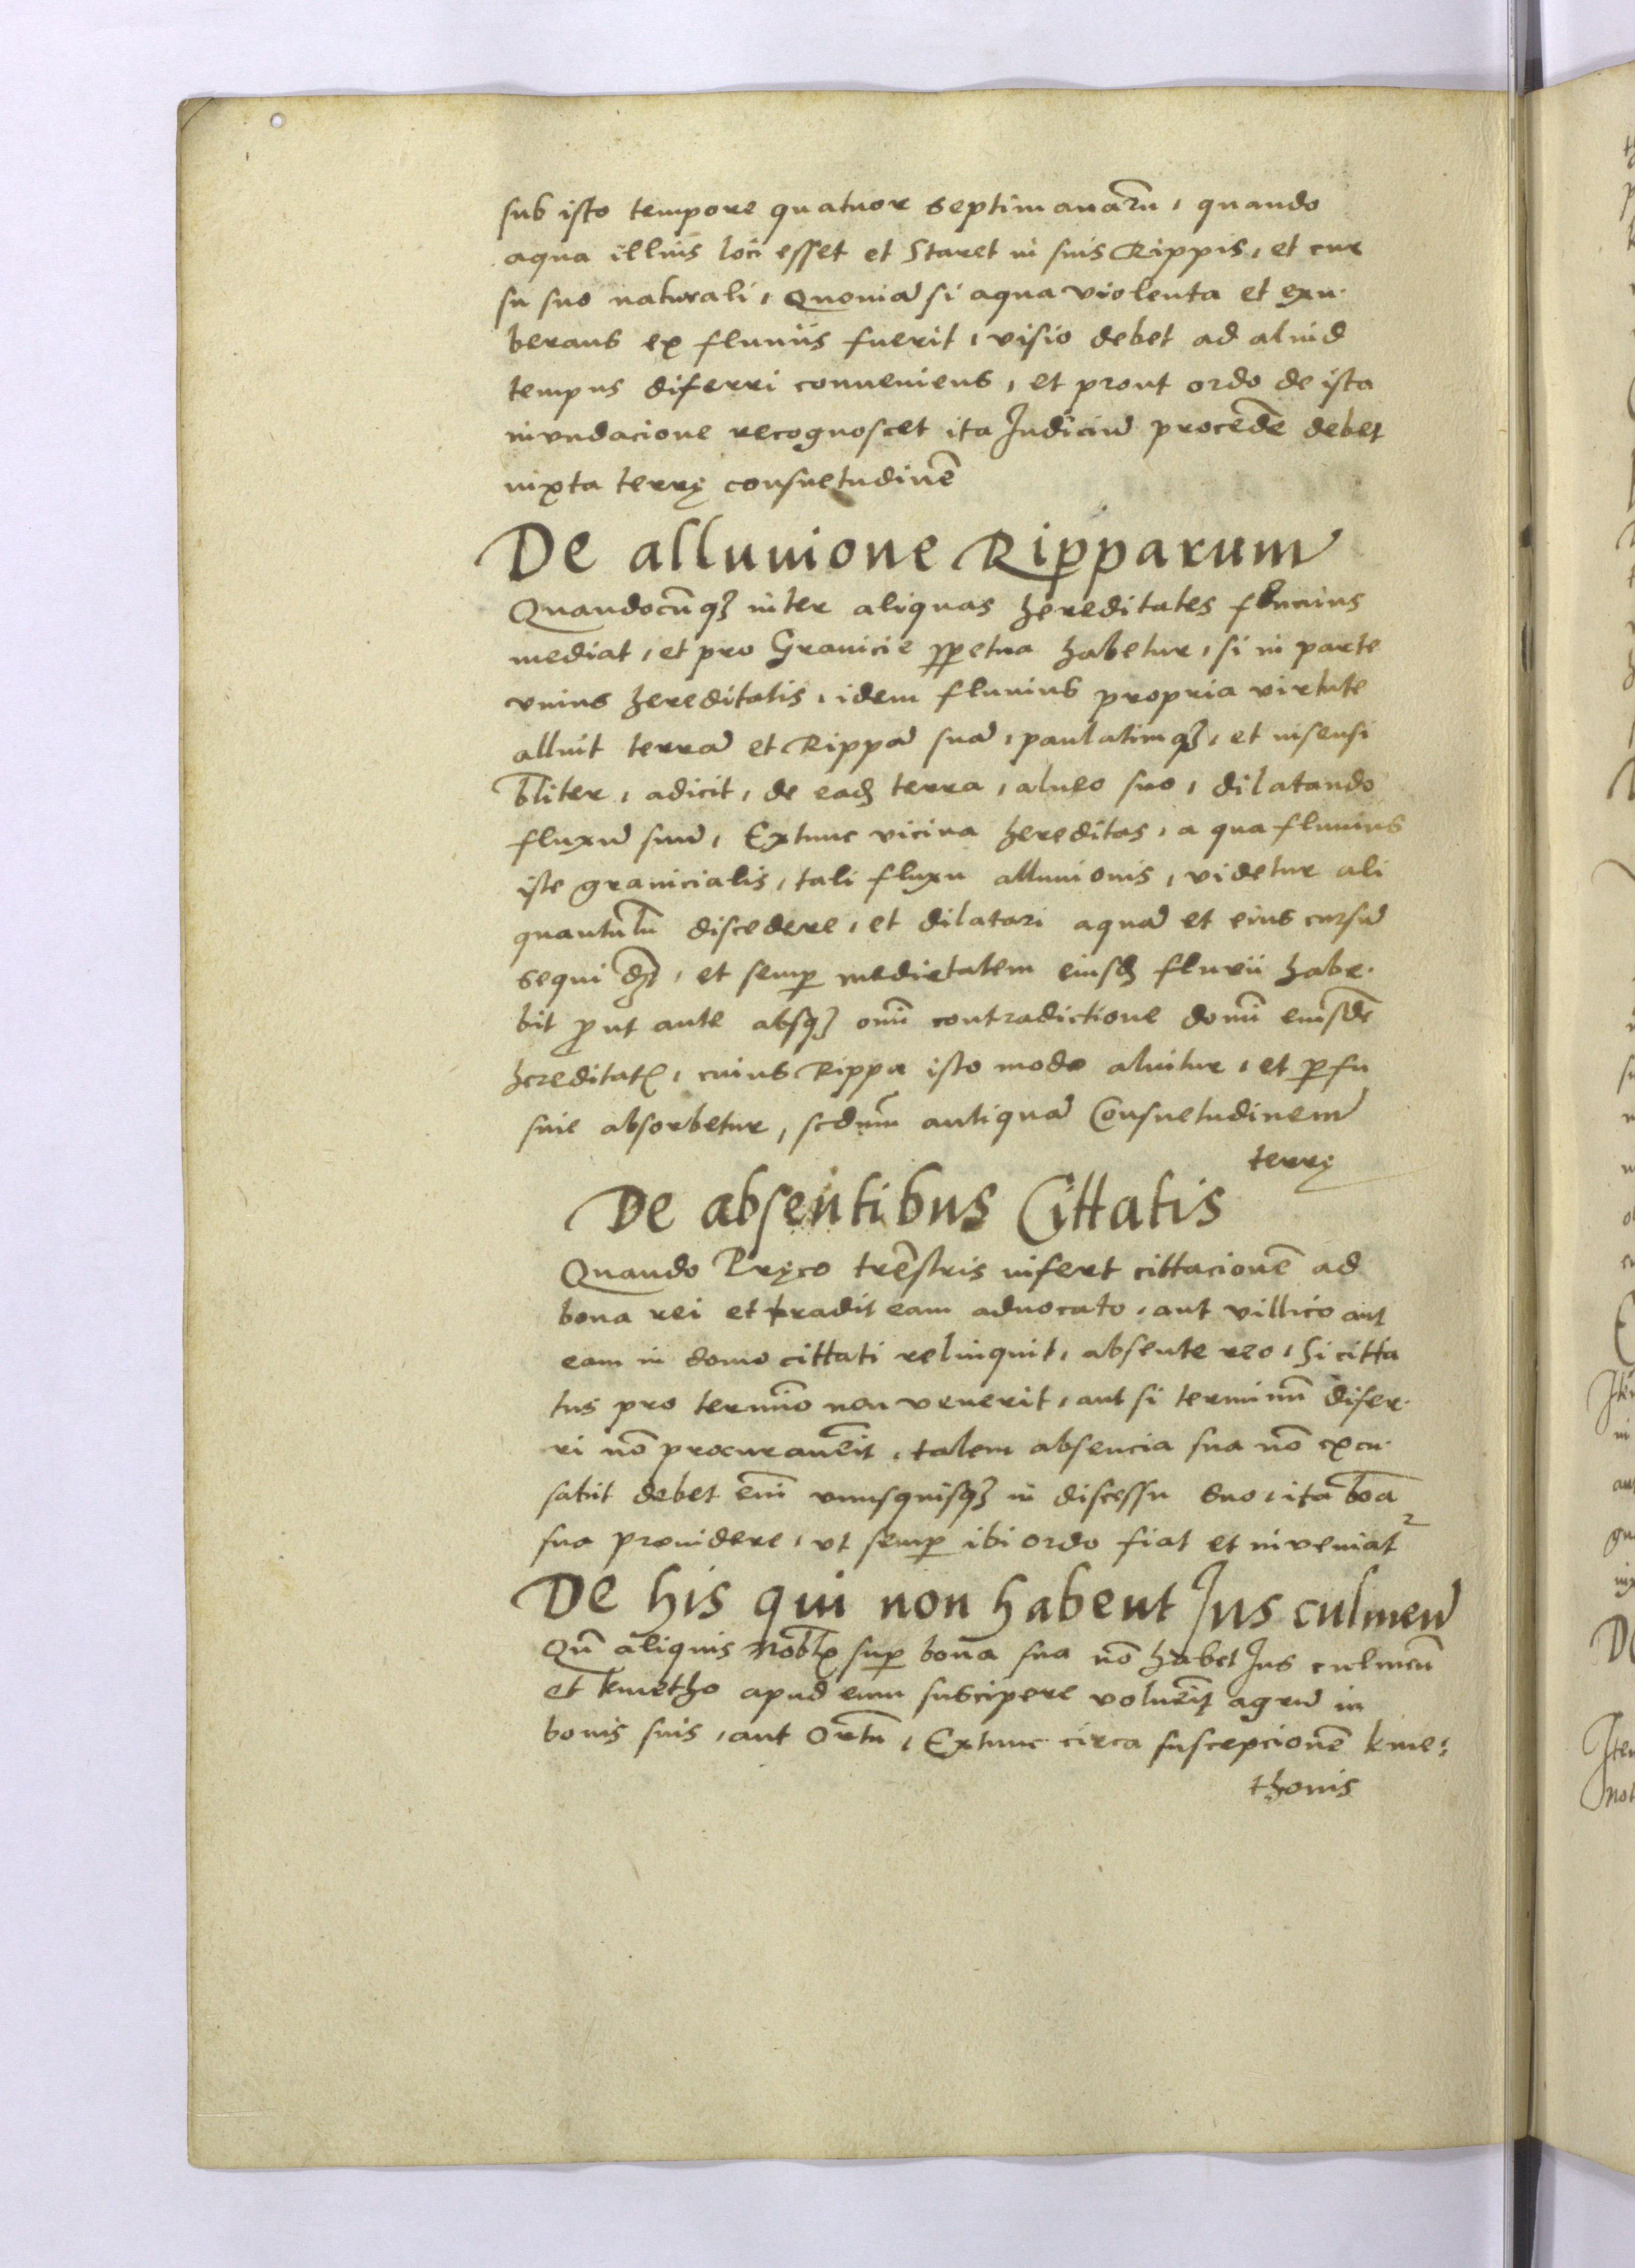 sub isto tempore quatuor septimanarū, quando
aqua illius loci esset et Staret in suis Rippis, et cur
su suo naturali, Quoniā si aqua violenta et exu-
berans ex fluuiis fuerit, visio debet ad aliud
tempus diferri conueniens, et prout ordo de ista
invndacione recognoscet ita Judiciū procedē debet
iuxta terrę consuetudinē
De alluuione Ripparum
Quandocūqꝫ inter aliquas hereditates fluuius
mediat, et pro Granicie ꝑpetua habetur, si in parte
vnius hereditatis, idem fluuius propria virtute
alluit terrā et Rippā suā, paulatimqꝫ, et insensi
bliter, adicit, de eadꝫ terra, alueo suo, dilatando
fluxū suū, Extunc vicina hereditas, a qua fluuius
iste granicialis, tali fluxu alluuionis, videtur ali
quantulū discedere, et dilatari aquā et eius cursū
sequi , et semꝑ medietatem eiusdꝫ fluvii habe-
bit ꝓut ante absqꝫ oīm contradictione domī eiusdē
hereditatꝭ, cuius Rippa isto modo aluitur, et perfu
sive absorbetur, scdūm antiquā Consuetudinem
terrę
De absentibus Cittatis
Quando Pręco trēstris infert cittacionē ad
bona rei et tradit eam aduocato, aut villico aut
eam in domo cittati relinquit, absente reo, Si citta
tus pro termīo non venerit, aut si terminū difer-
ri nō procurauēit, talem absencia sua nō excu-
sabit debet enī vnusquisqꝫ in discessu suo, ita bōa
sua prouidere, vt semꝑ ibi ordo fiat et inveniat²
De his qui non habent Jus culmen
Qn̄ aliquis Nobłꝭ suꝑ bona sua nō habet Jus culmeū
et kmetho apud eum suscipere voluēit agrū in
bonis suis, aut Ortū, Extunc circa suscepcionē kme-
thonis